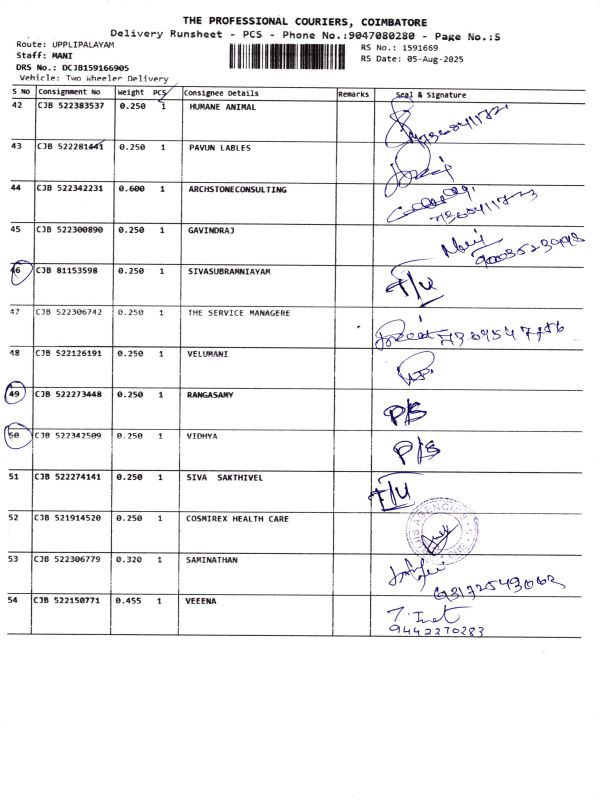 THE PROFESSIONAL COURIERS, COIMBATORE
Delivery Runsheet - PCS - Phone No.:9047080280 - Page No.:5
Route: UPPLIPALAYAM
Staff: MANI
DRS No.: DCJB159166905
Vehicle: Two Wheeler Delivery
RS No.: 1591669
RS Date: 05-Aug-2025
S No Consignment No Weight PCS Consignee Details Remarks Seal & Signature
42 CJB 522383537 0.250 1 HUMANE ANIMAL
43 CJB 522281441 0.250 1 PAVUN LABLES
44 CJB 522342231 0.600 1 ARCHSTONECONSULTING
45 CJB 522300890 0.250 1 GAVINDRAJ
46 CJB 81153598 0.250 1 SIVASUBRAMNIAYAM
47 CJB 522306742 0.250 1 THE SERVICE MANAGERE
48 CJB 522126191 0.250 1 VELUMANI
49 CJB 522273448 0.250 1 RANGASAMY P/S
50 CJB 522342509 0.250 1 VIDHYA P/S
51 CJB 522274141 0.250 1 SIVA SAKTHIVEL
52 CJB 521914520 0.250 1 COSMIREX HEALTH CARE AGENCIES
53 CJB 522306779 0.320 1 SAMINATHAN
54 CJB 522150771 0.455 1 VEEENA
9442270283